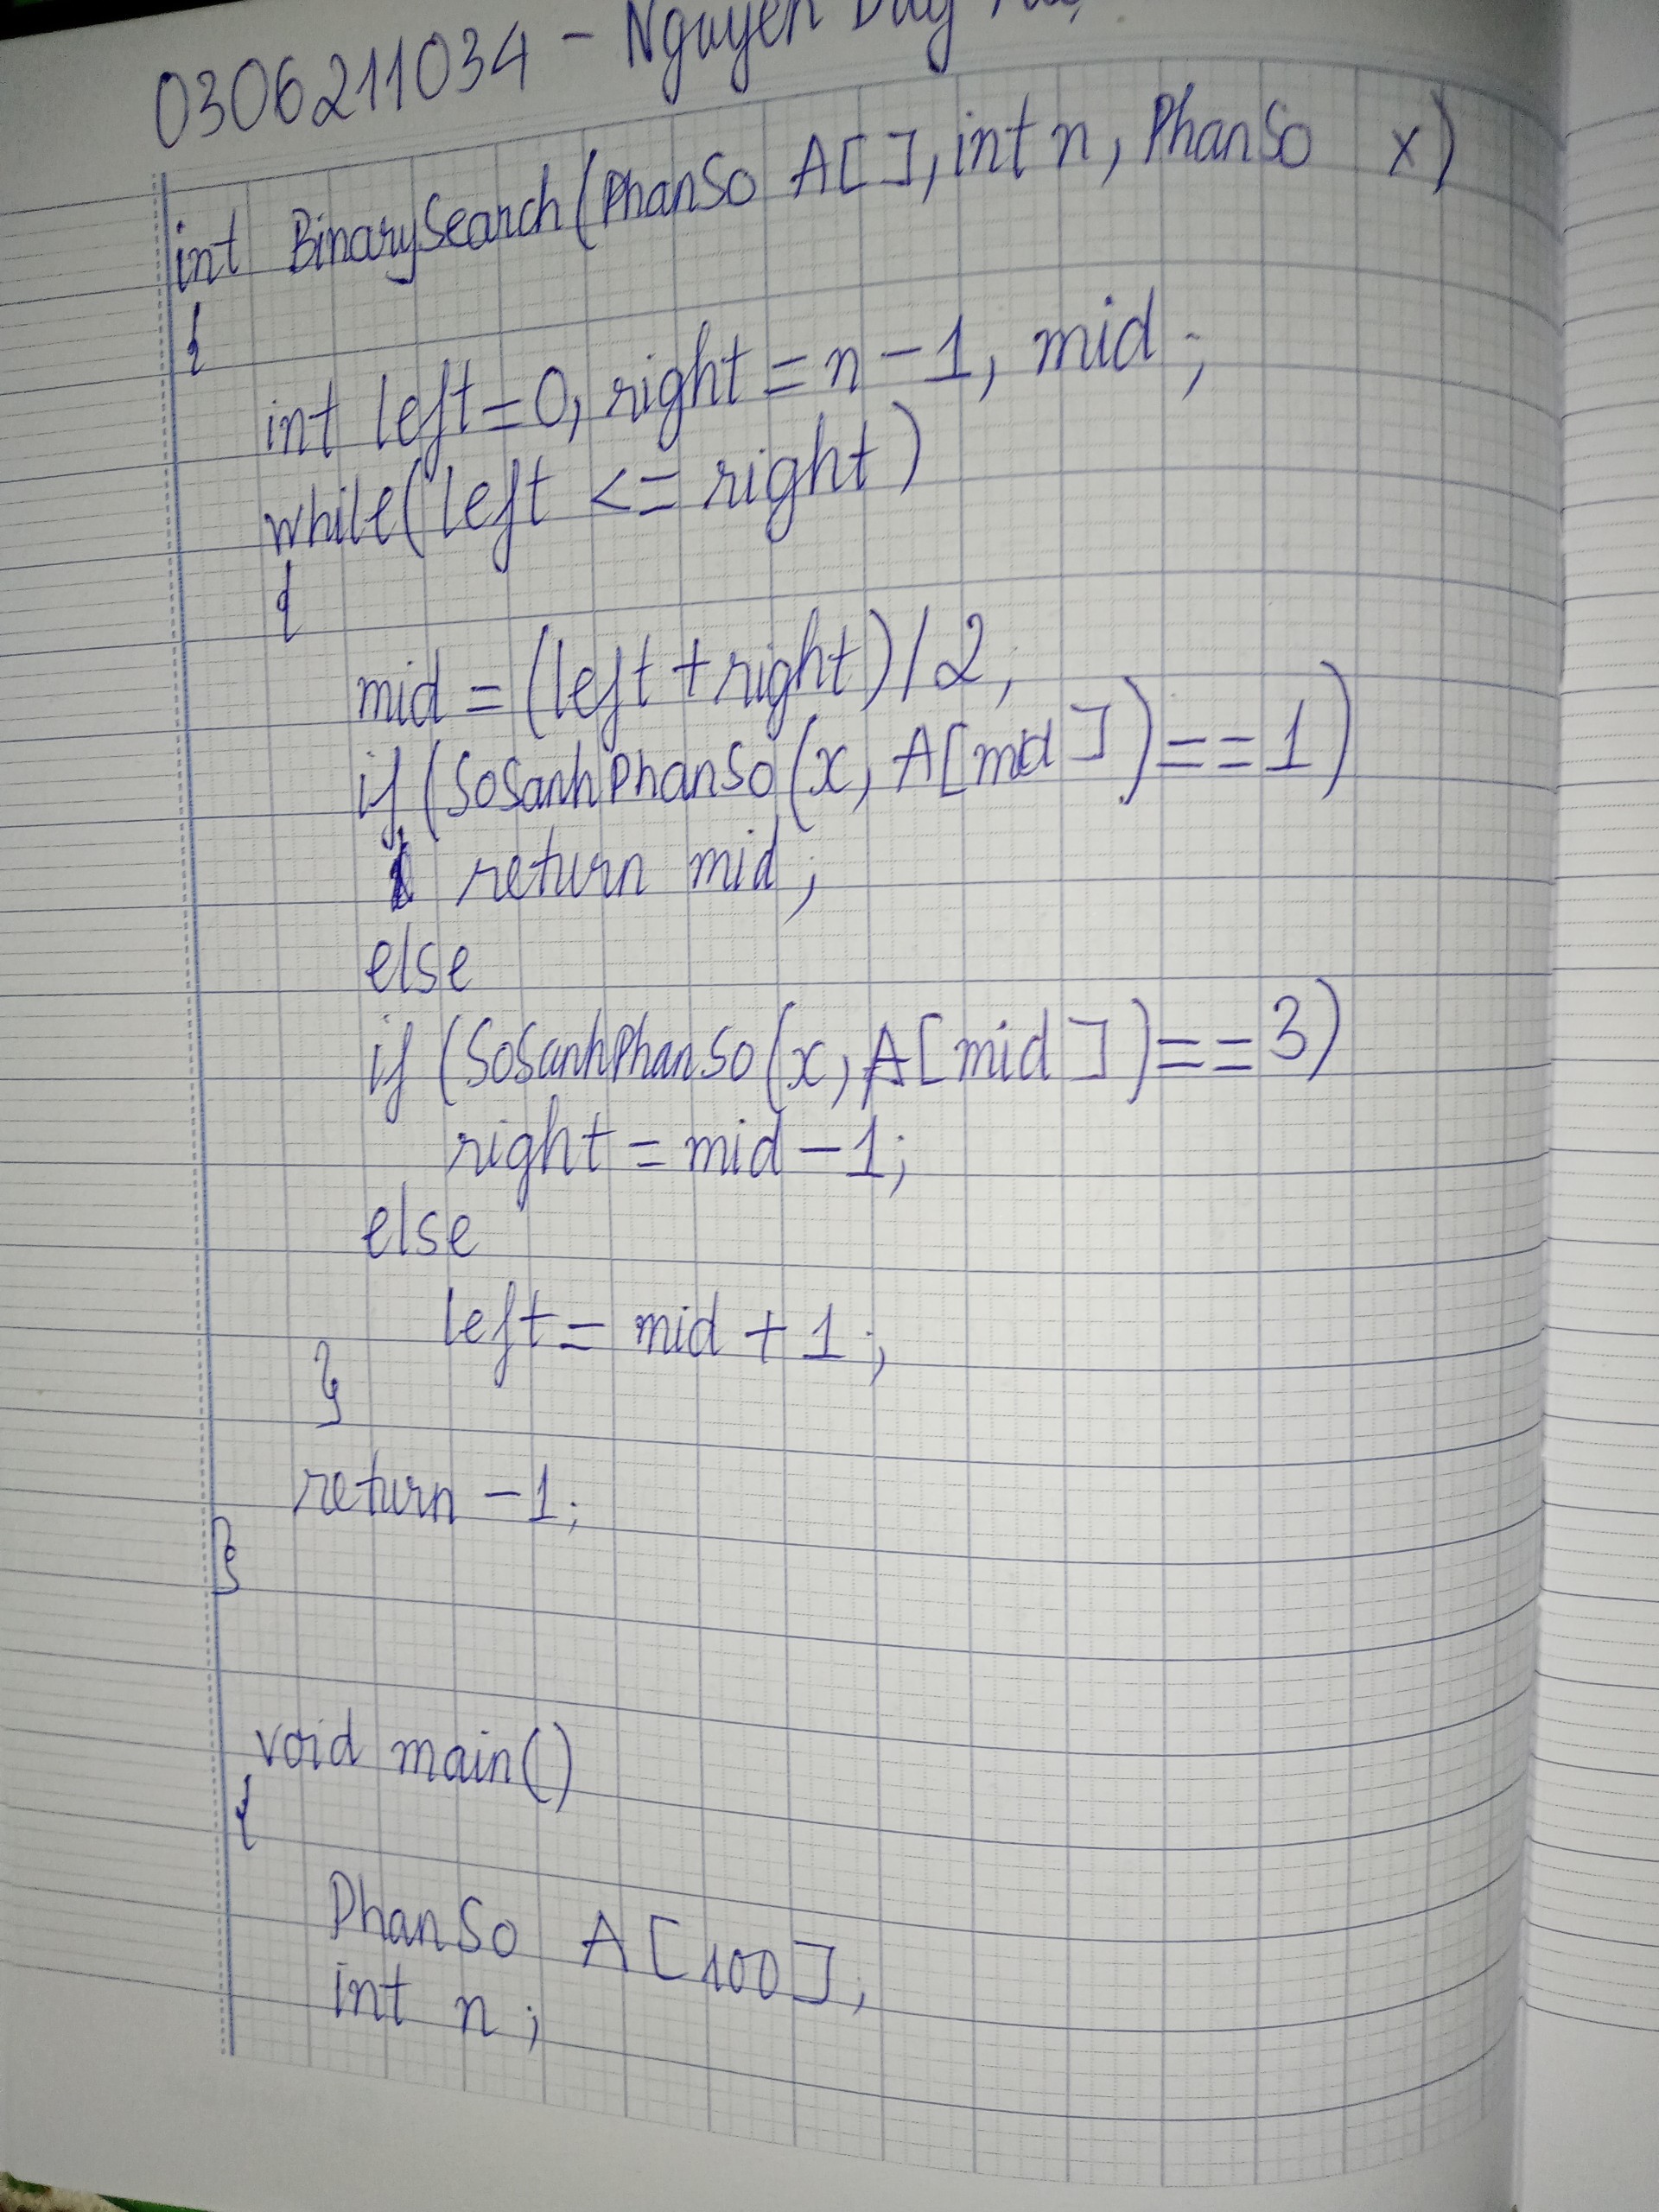 0306211034 - Nguyen Duy
int BinarySearch(PhanSo A[], int n, PhanSo x)
{
int left=0, right=n-1, mid;
while(left <= right)
{
mid = (left+right)/2;
if (SoSanhPhanSo(x, A[mid])==1)
return mid;
else
if (SoSanhPhanSo(x, A[mid])==3)
right = mid-1;
else
left = mid + 1;
}
return -1;
}
void main()
{
PhanSo A[100];
int n;